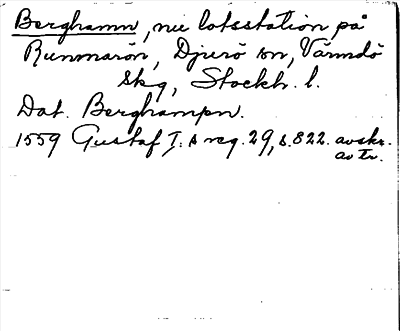 Berghamn, nu lotsstation på
Runmarön, Djurö sn, Värmdö
skg, Stockh. l.
Dat. Berghampn.
1559 Gustaf I:s reg. 29, s. 822. avskr.
av tr.